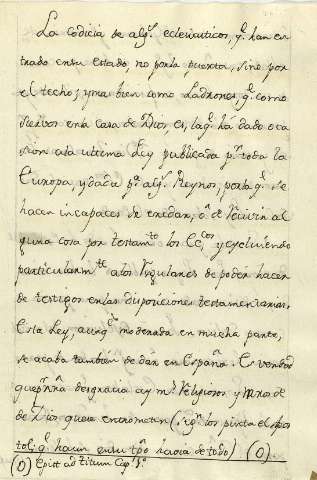 La codicia de alg.s eclesiasticos, q.e han en
trado en su estado, no por la puerta, sino por
el techo; y mas bien como Ladrones, q.e como
siervos en la casa de Dios, es, la q.e há dado oca
sion a la ultima Ley publicada p.r toda la
Europa, y dada p.a alg.s Reynos, por la q.e se
hacen incapaces de eredar, ó de recivir al
guna cosa por testam.to los Ec.cos y excluiendo
particularm.te a los Regulares de poder hacer
de testigos en las disposiciones testamentarias.
Esta Ley, aunq.e moderada en mucha parte,
se acaba también de dár en España. Es verdad
que p.r nrã desgracia ay m.s Religiosos y
de los que se entrometen (seg.n los pinta el Apos
tol; q.e hacen en su tpõ havia de todo) (O)
(O) Epist. ad Titum Cap. 1.o